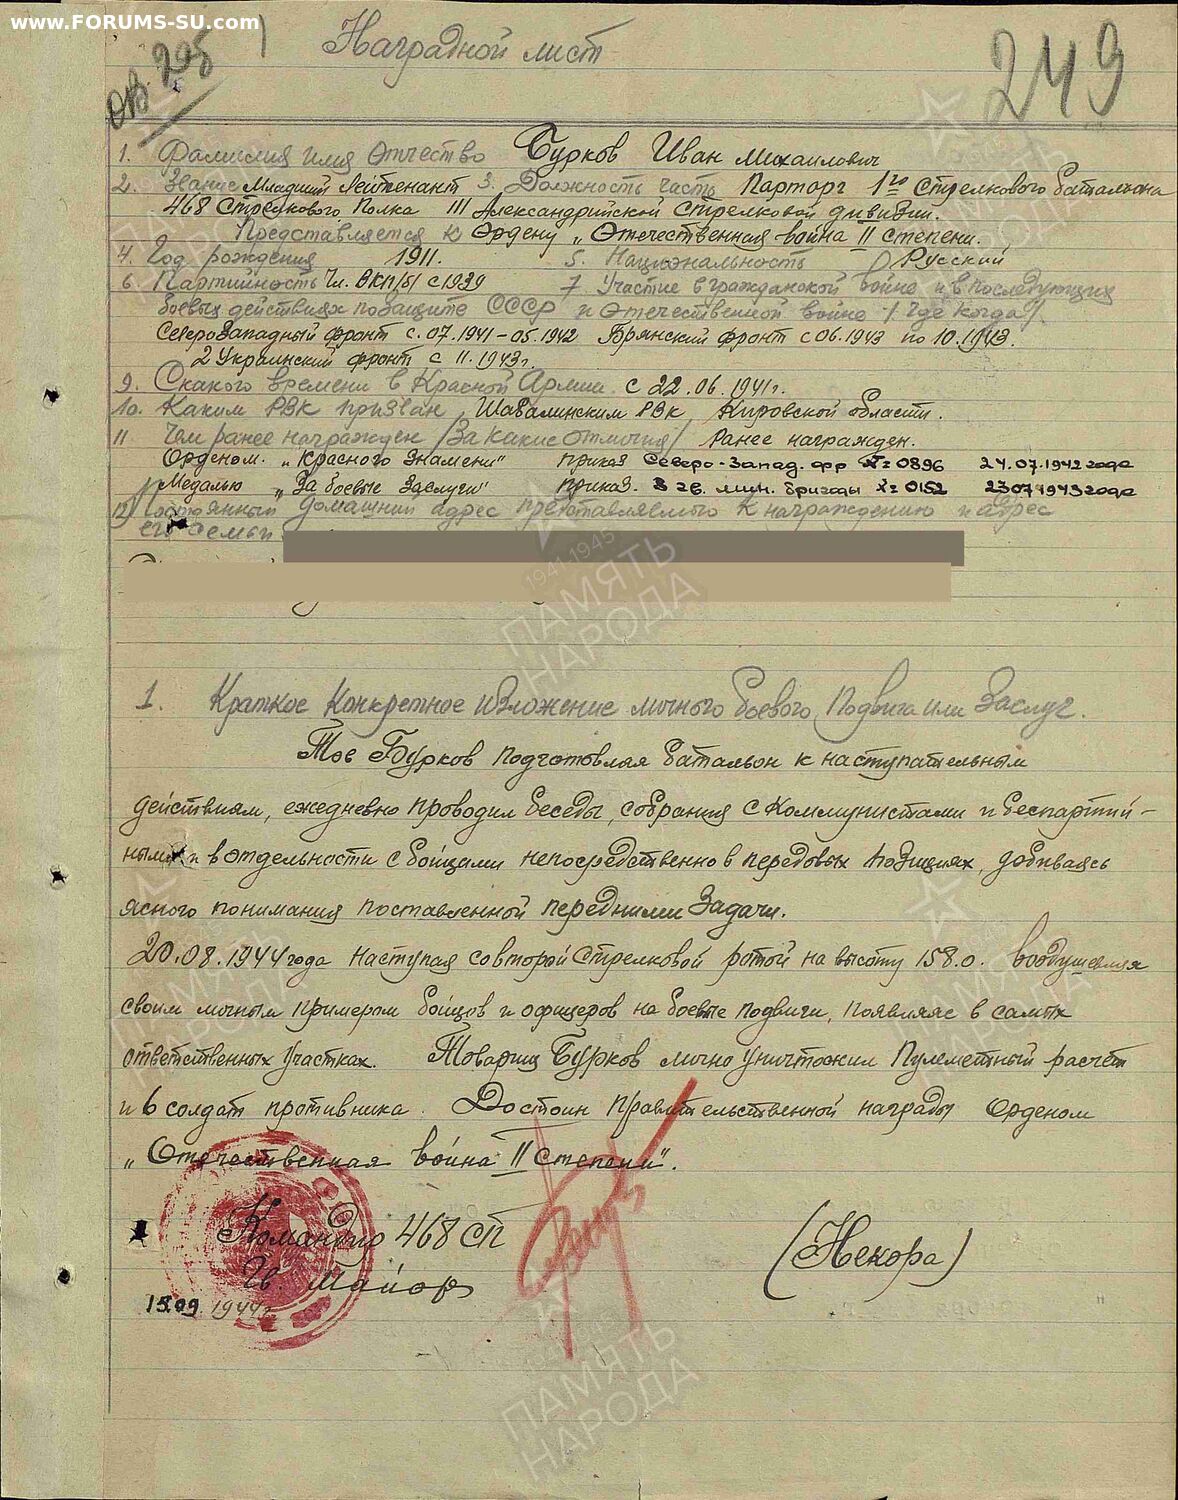 www.FORUMS-SU.com
Наградной лист
249
1. Фамилия имя Отчество Бурков Иван Михаилович
2. Звание Младший Лейтенант 3. Должность часть Парторг 1го Стрелкового баталиона
468 Стрелкового Полка III Александрийской стрелковой дивизии.
Представляется к Ордену „Отечественная война II степени.
4. Год рождения 1911. 5. Национальность Русский
6. Партийность Чл. ВКП/б/ с 1939 7 Участие в гражданской войне и в последующих
боевых действиях по защите СССР и отечественной войне / где когда/
Северо Западный фронт с. 07.1941-05.1942 Брянский фронт с 06.1943 по 10.1943.
2 Украинский фронт с 11.1943г.
9. С какого времени в Красной Армии с 22.06.1941г.
10. Каким РВК призван Шабалинским РВК Кировской области.
11 Чем ранее награжден /За какие отличия/ Ранее награжден.
Орденом. „Красного Знамени" приказ Северо-Запад. фр №=0896 24.07.1942 года
Медалью „За боевые Заслуги" приказ. 3 гв. мин. бригады №=0152 23 07 1943 года
12) Постоянный домашний адрес представляемого к награждению и адрес
его семьи
1941-1945
ПАМЯТЬ
НАРОДА
1. Краткое Конкретное изложение личного боевого Подвига или Заслуг.
Тов Бурков подготовляя батальон к наступательным
действиям, ежедневно проводил беседы, собрания с Коммунистами и беспартий-
ными и в отдельности с бойцами непосредственно в передовых позициях, добиваясь
ясного понимания поставленной перед ними Задачи.
20.08.1944 года наступая со второй стрелковой ротой на высоту 158.0. воодушевляя
своим личным примером бойцов и офицеров на боевые подвиги, появляяс в самых
ответственных участках. Товарищ Бурков лично уничтожил Пулеметный расчёт
и 6 солдат противника. Достоин правительственной награды Орденом
„Отечественная война II степени".
Командир 468 СП
Гв. Майор (Некора)
15.09.1944г.
ПАМЯТЬ
НАРОДА